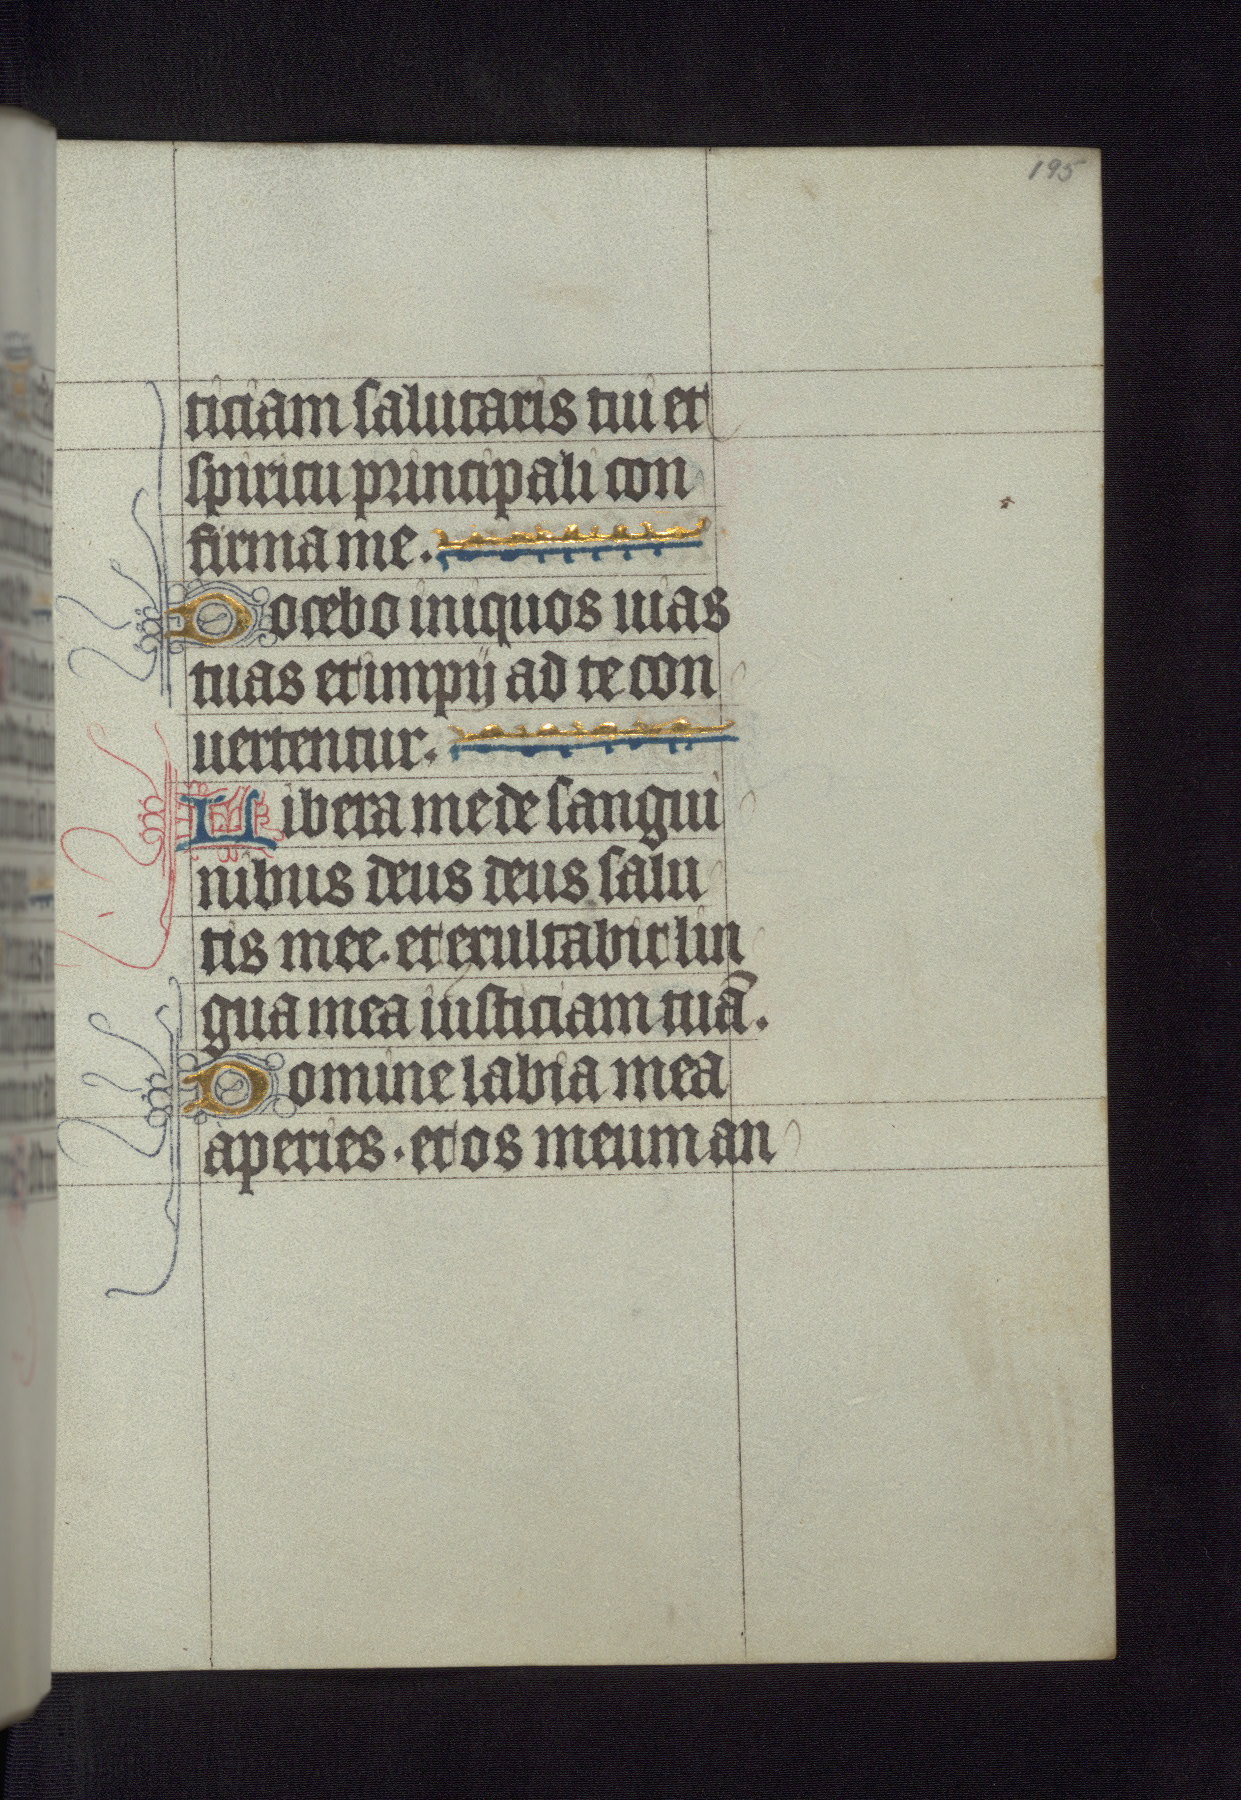 195
ticiam salutaris tui et
spiritu principali con
firma me.
Docebo iniquos uias
tuas et impij ad te con
uertentur.
Libera me de sangui
nibus deus deus salu
tis mee. et exultabit lin
gua mea iusticiam tuā.
Domine labia mea
aperies. et os meum an